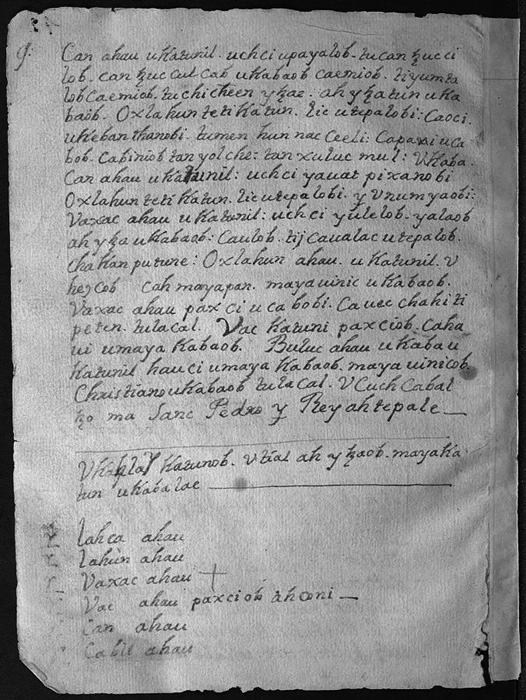 Can ahau u katunil. uchci u payalob. tu can tzucci
lob. can tzuc cul cab u kabaob caemiob. ti yum ta
lob caemiob. tu chi cheen ytzae. ah ytzatun u ka
baob. Oxlahun te ti katun. lic u tepalobi: Caoci.
u keban thanobi. tumen hun nac ceeli: Capaxi u ca
bob. Cabiniob tan yol che: tan xuluc mul: U kaba.
Can ahau u katunil: uchci yauat pixanobi
Oxlahun te ti katun. lic u tepalobi. y U numyaobi:
Vaxac ahau u katunil: uchci yulelob. yalaob
ah ytza u kabaob: Caulob. tij caualac u tepalob.
chakan putune: Oxlahun ahau. u katunil. U
hetzcob Cah mayapan. maya uinic u kabaob.
Vaxac ahau paxci u cabobi. Ca uec chahi ti
peten. tulacal. Vac katuni paxciob. Caha
ui u maya kabaob. Buluc ahau u kaba u
katunil hauci u maya kabaob. maya uinicob.
Christiano u kabaob tulacal. U Cuch Cabal
tzo ma Sanc Pedro y Rey ahtepale
katunob. U tial ah ytzaob. maya ka
tun u kaba lae
Lahca ahau
Lahun ahau
Vaxac ahau +
Vac ahau paxciob
Can ahau
Cabil ahau